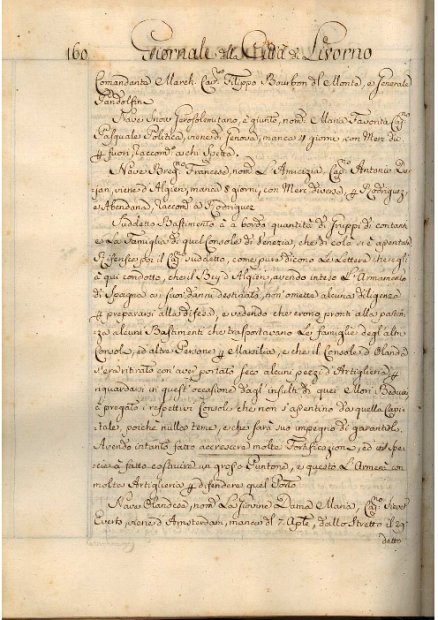 160 Giornale della Città di Livorno
Comandante March. Cavre. Filippo Bourbon del Monte, e Generale
Pandolfini
Nave Snow Gerosolemitano, è giunto, nomto. Maria Favorita, Capno.
Pasquale Politica, viene di Genova, manca 4 giorni con Merc. div.
4 fuori, raccomto. a chi spetta.
Nave Bregno. Francese, nomto. L'Amicizia, Capno. Antonio
, viene d'Algieri, manca 8 giorni, con Merc. diverse, 4 Rodriguez
e Abendana, raccomto. a Rodriguez
Suddetto Bastimento à a bordo quantità di gruppi di contante
e la Famiglia di quel Console di Venezia, che di colà si è assentata
Riferisce poi il Capno. suddetto, come pure dicono le Lettere che egli
à qui condotto, che il Bey d'Algieri, avendo inteso l'Armamento
di Spagna a' suoi danni destinato, non omette alcuna diligenza
4 prepararsi alla difesa, e vedendo che erono pronti alla parten-
za alcuni Bastimenti che trasportavano le famiglie degl'altri
Consoli, ed altre Persone 4 Marsilia, e che il Console d'Olanda
s'era ritirato con aver portato seco alcuni pezzi d'Artiglieria 4
riguardarsi in quest'occasione dagl'insulti di quei Mori Beduini
à pregato i respettivi Consoli che non s'assentino da quella Capi-
tale, poiche nulla teme, e che sarà suo impegno di garantirli.
Avendo intanto fatto accrescere molte Fortificazioni, ed in spe-
cie à fatto costruire un grosso Puntone, e questo l'Armerà con
molta Artiglieria 4 difendere quel Porto
Nave Olandese, nomta. La Giovane Dama Maria, Capno.
Everts, viene d'Amsterdam, manca dl 7. Aple., dallo Stretto il 29
detto